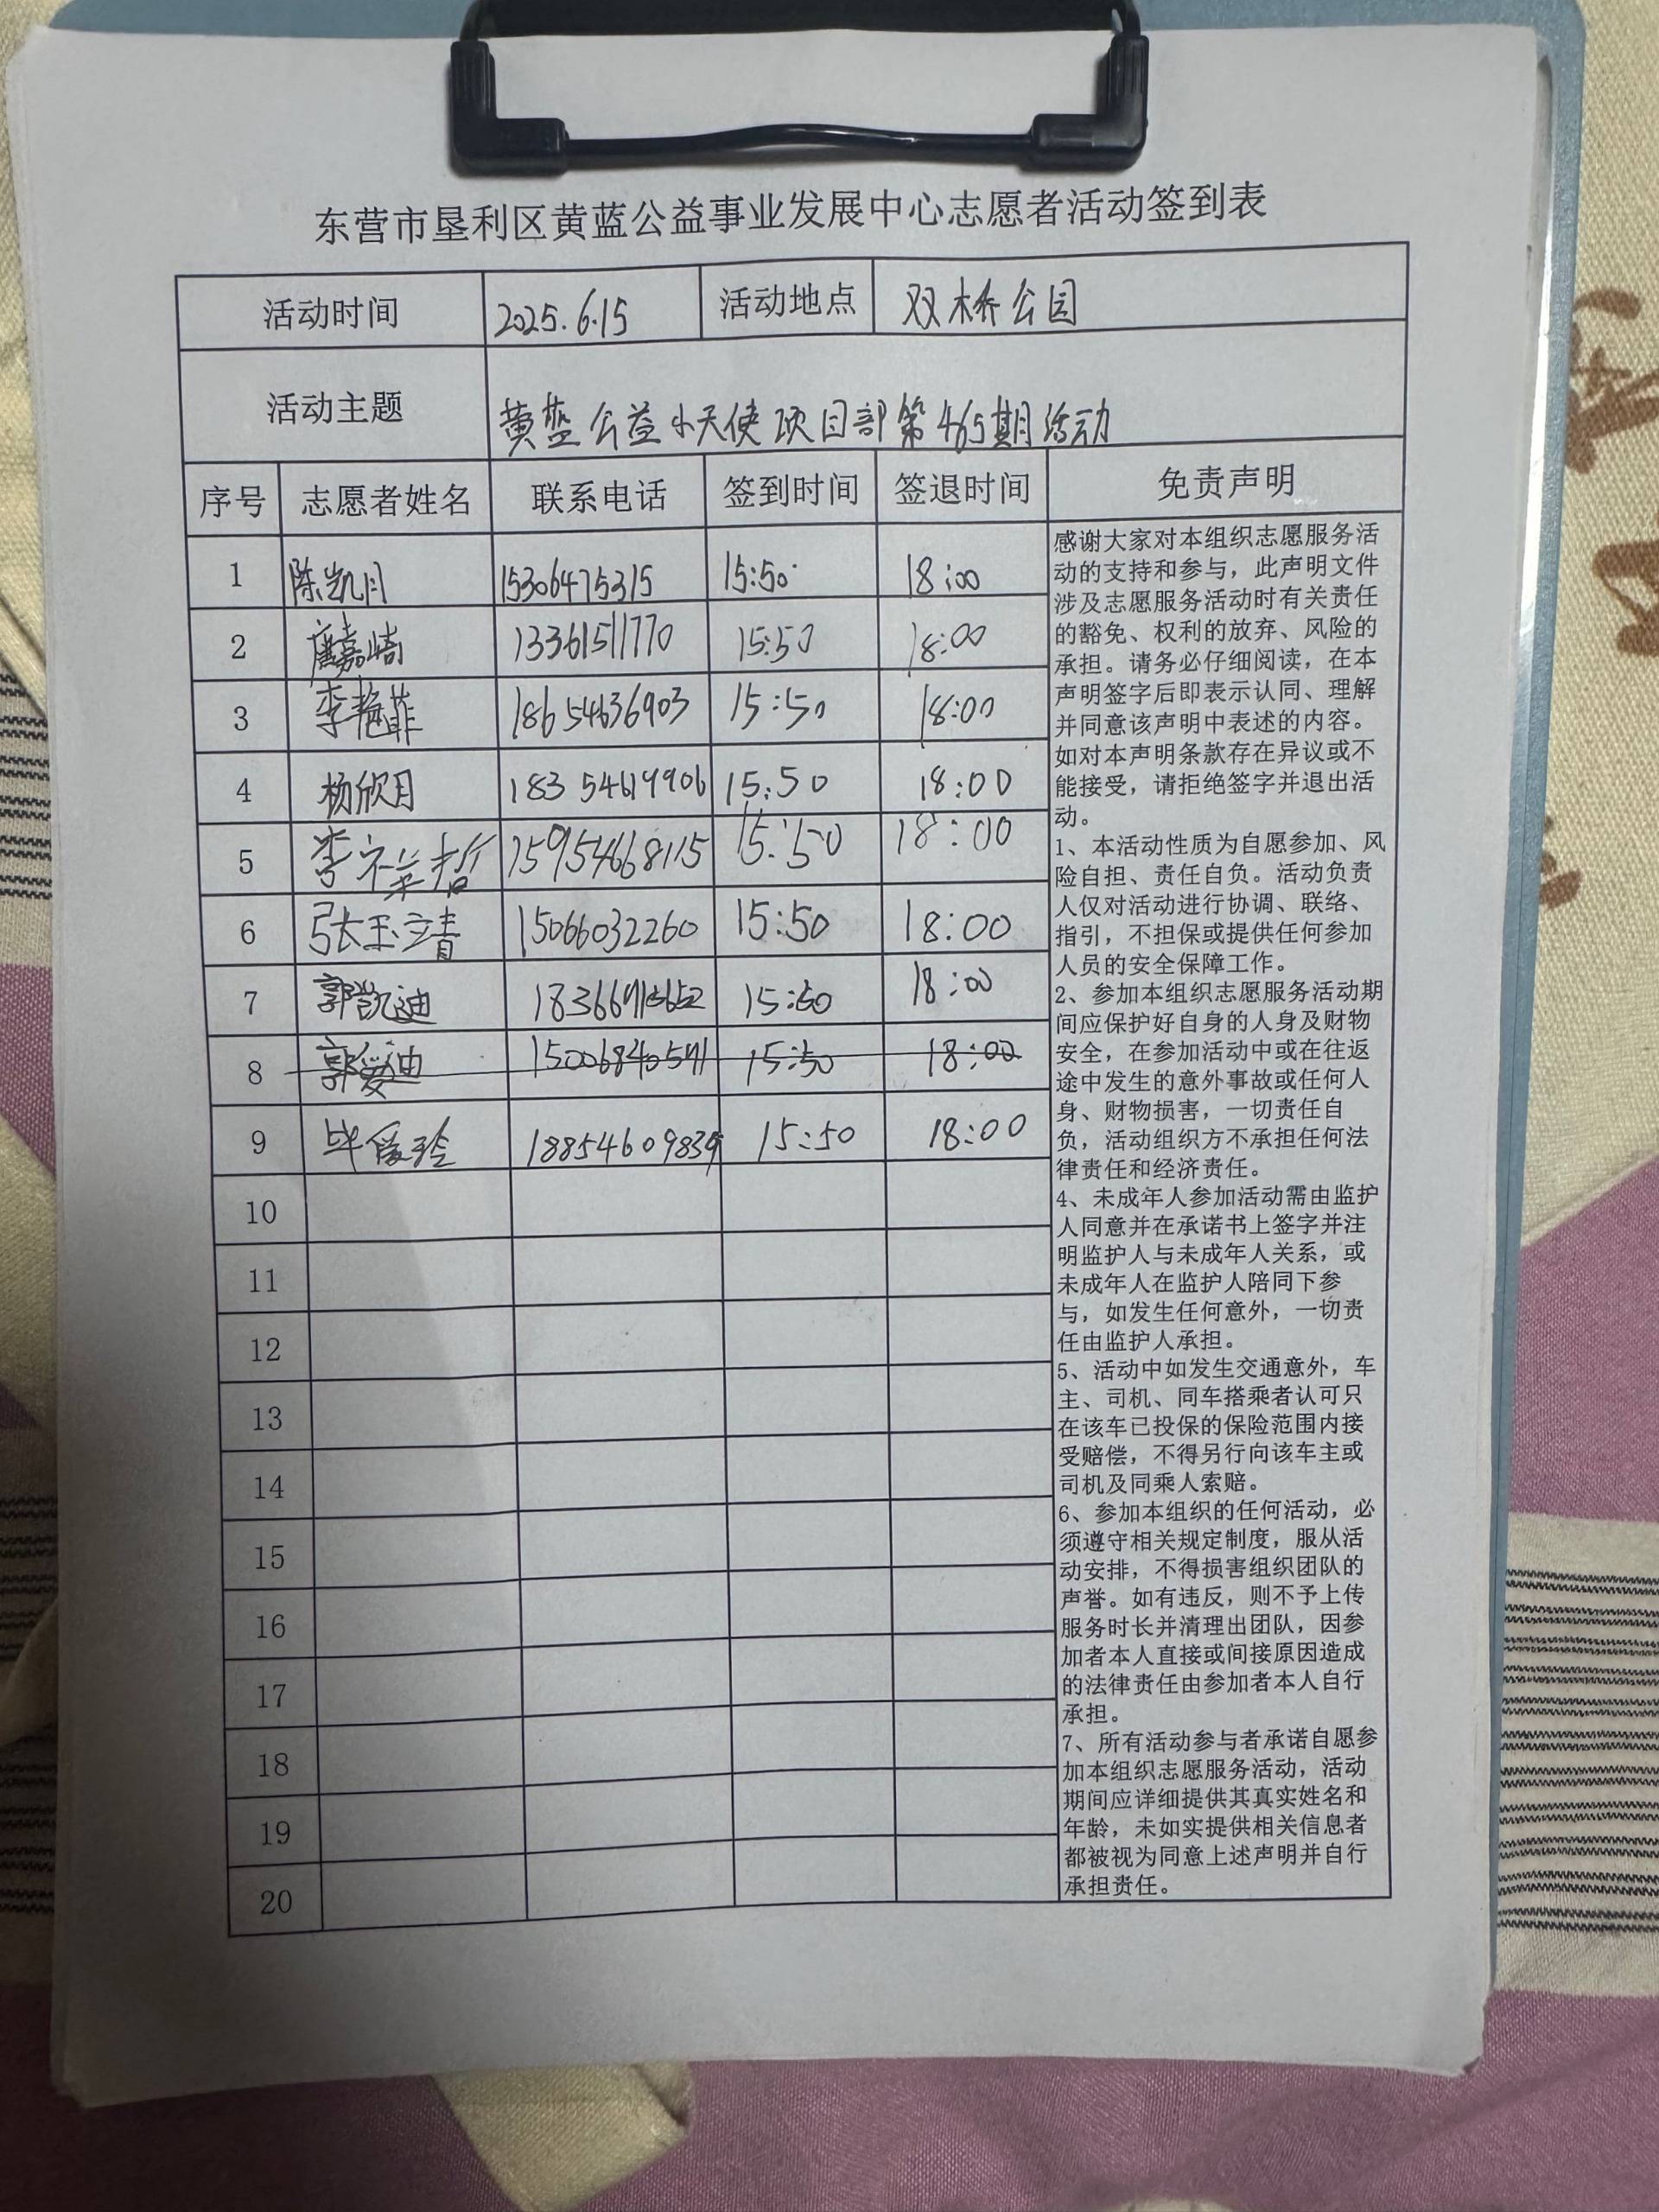 东营市垦利区黄蓝公益事业发展中心志愿者活动签到表
活动时间 2025.6.15 活动地点 双桥公园
活动主题 黄蓝公益小天使项目部第465期活动
序号 志愿者姓名 联系电话 签到时间 签退时间 免责声明
1 陈凯月 15306475315 15:50 18:00
2 唐嘉崎 13361511770 15:50 18:00
3 李艳菲 18654636903 15:50 18:00
4 杨欣月 18354619906 15:50 18:00
5 李祥哲 15954668115 15:50 18:00
6 张玉清 15066032260 15:50 18:00
7 郭凯迪 15:50 18:00
8 郭爱迪 15006840541 15:50 18:00
9 毕爱玲 18854609839 15:50 18:00
10
11
12
13
14
15
16
17
18
19
20
感谢大家对本组织志愿服务活
动的支持和参与，此声明文件
涉及志愿服务活动时有关责任
的豁免、权利的放弃、风险的
承担。请务必仔细阅读，在本
声明签字后即表示认同、理解
并同意该声明中表述的内容。
如对本声明条款存在异议或不
能接受，请拒绝签字并退出活
动。
1、本活动性质为自愿参加、风
险自担、责任自负。活动负责
人仅对活动进行协调、联络、
指引，不担保或提供任何参加
人员的安全保障工作。
2、参加本组织志愿服务活动期
间应保护好自身的人身及财物
安全，在参加活动中或在往返
途中发生的意外事故或任何人
身、财物损害，一切责任自
负，活动组织方不承担任何法
律责任和经济责任。
4、未成年人参加活动需由监护
人同意并在承诺书上签字并注
明监护人与未成年人关系，或
未成年人在监护人陪同下参
与，如发生任何意外，一切责
任由监护人承担。
5、活动中如发生交通意外，车
主、司机、同车搭乘者认可只
在该车已投保的保险范围内接
受赔偿，不得另行向该车主或
司机及同乘人索赔。
6、参加本组织的任何活动，必
须遵守相关规定制度，服从活
动安排，不得损害组织团队的
声誉。如有违反，则不予上传
服务时长并清理出团队，因参
加者本人直接或间接原因造成
的法律责任由参加者本人自行
承担。
7、所有活动参与者承诺自愿参
加本组织志愿服务活动，活动
期间应详细提供其真实姓名和
年龄，未如实提供相关信息者
都被视为同意上述声明并自行
承担责任。